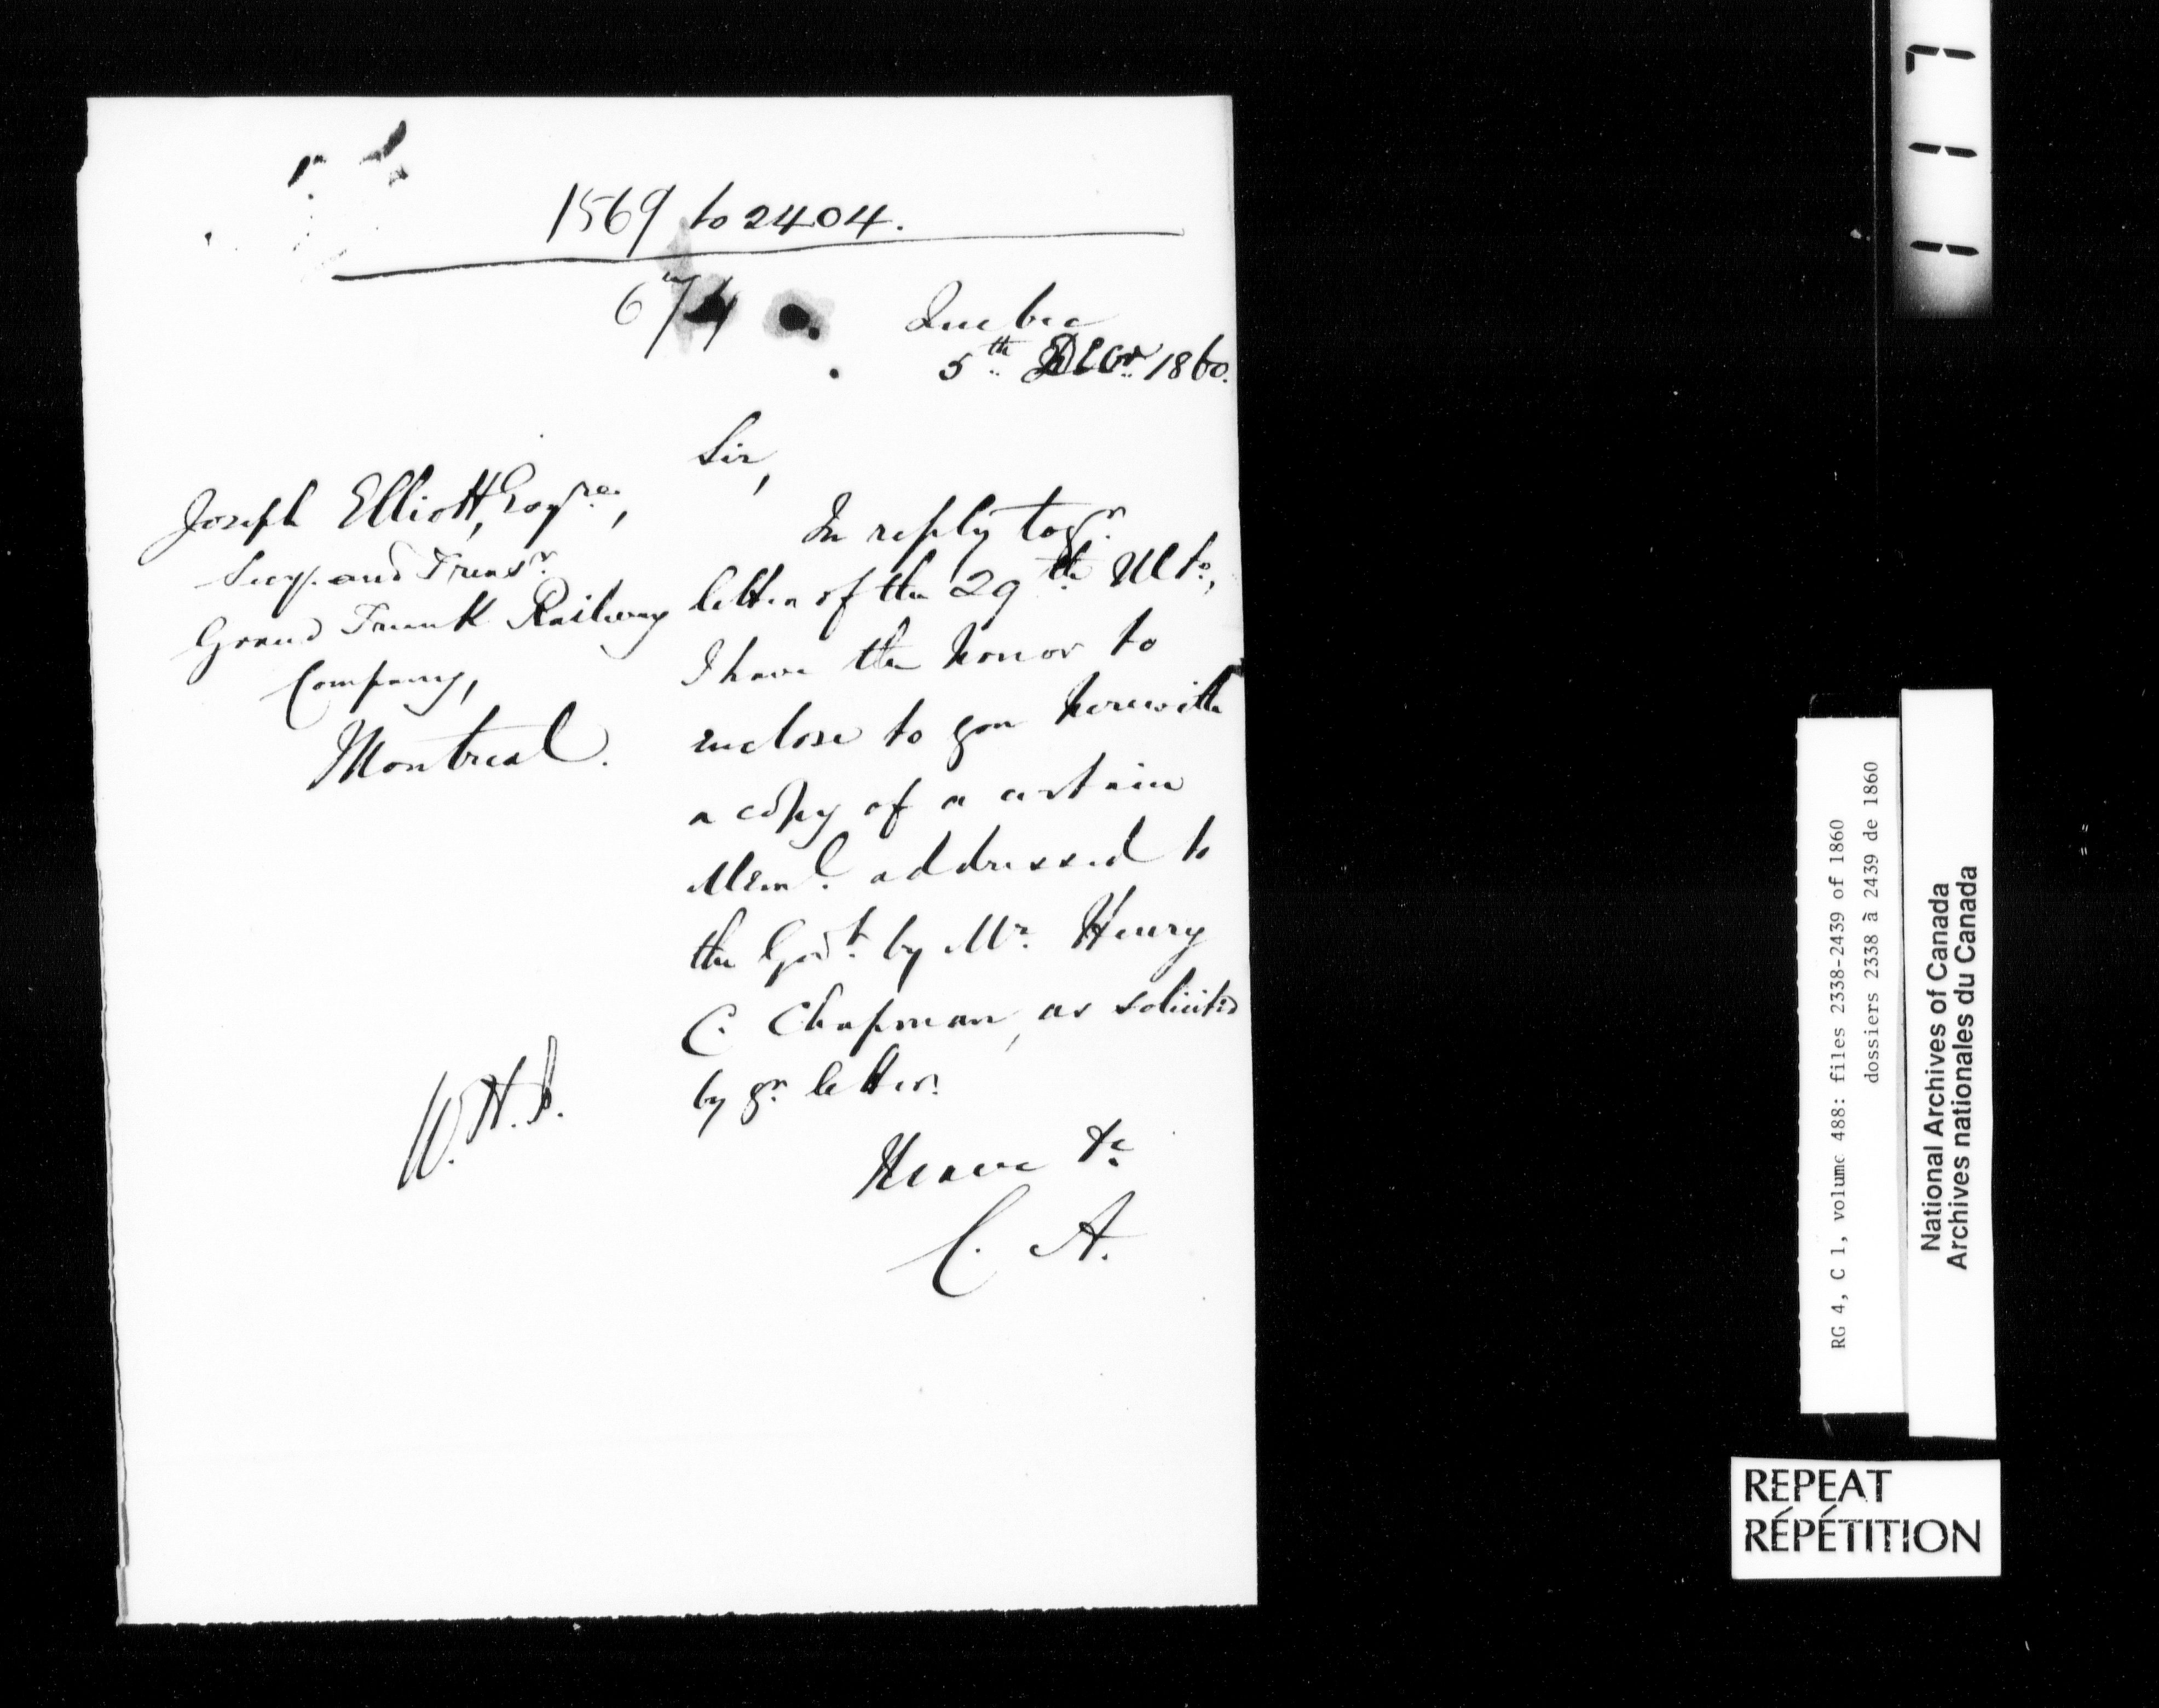 1569 to 2404.
674
Quebec
5th Decr. 1860.
Sir,
Joseph Elliott, Esqre.,
Secy. and Treasr.
Grand Trunk Railway
Company,
Montreal.
In reply to yr.
letter of the 29th Ulto.,
I have the honor to
enclose to you herewith
a copy of a certain
Meml. addressed to
the Govt. by Mr. Henry
C. Chapman, as solicited
by yr. letter.
W.H.J.
I have &c.
C. A.
117
RG 4, C 1, volume 488: files 2338-2439 of 1860
dossiers 2338 à 2439 de 1860
National Archives of Canada
Archives nationales du Canada
REPEAT
RÉPÉTITION